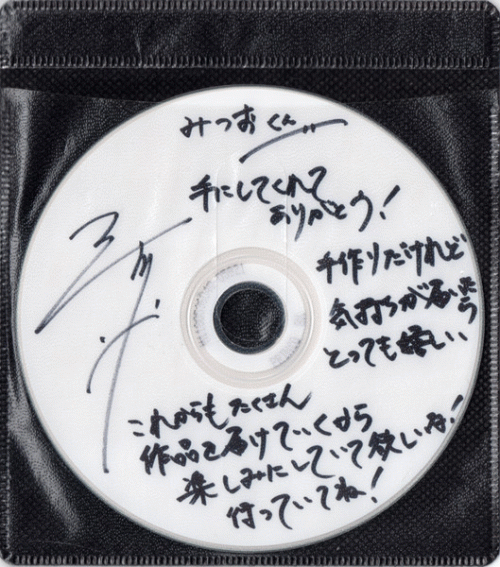 みつおくん
手にしてくれて
ありがとう!
手作りだけれど
気持ちが届いたら
とっても嬉しい
これからもたくさん
作品を届けていくから
楽しみにしていて欲しいな!
待っていてね!